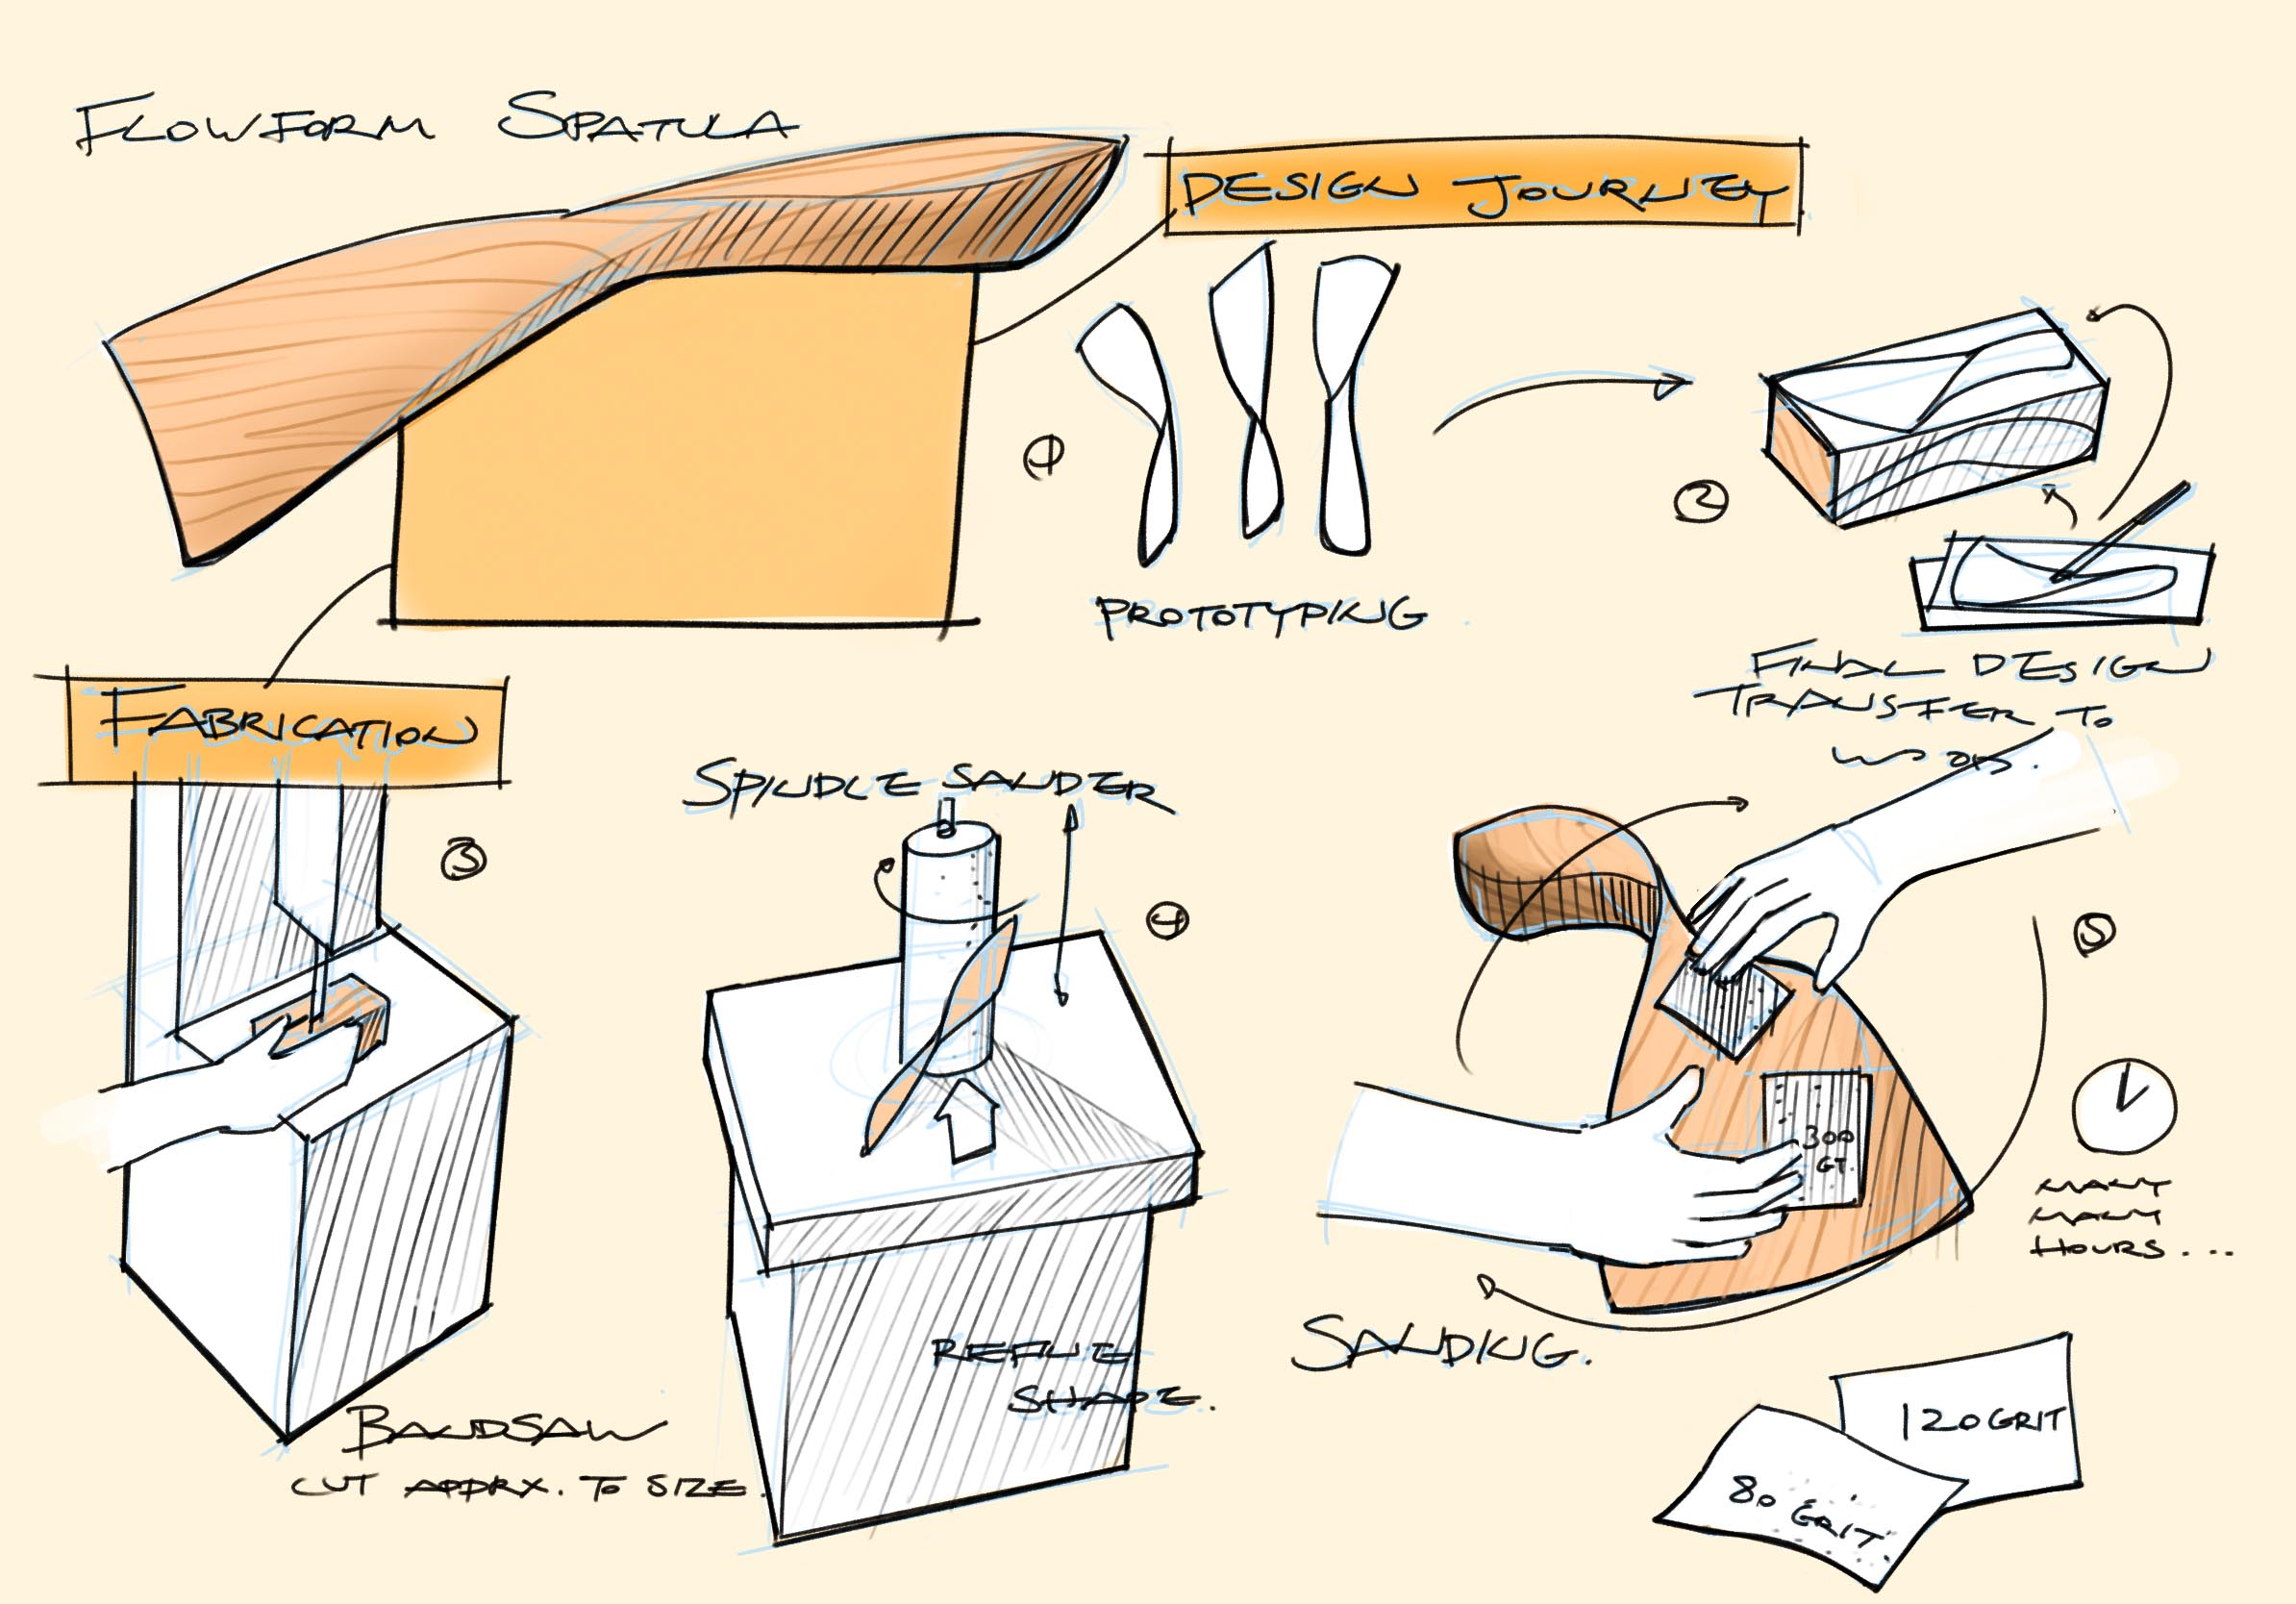 FLOWFORM SPATULA
DESIGN JOURNEY
1
PROTOTYPING
2
FINAL DESIGN
TRANSFER TO
WOOD.
FABRICATION
3
BANDSAW
CUT APPRX. TO SIZE.
SPINDLE SANDER
4
REFINE
SHAPE.
5
300
GT.
MANY
MANY
HOURS....
SANDING.
120 GRIT
80 GRIT